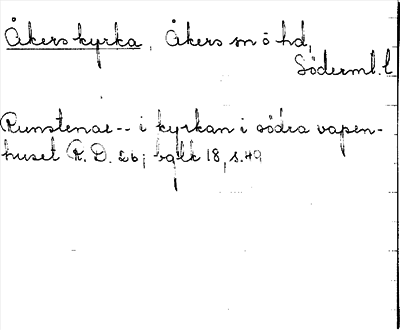 Åkers kyrka, Åkers sn ö hd,
Söderml. l
Runstenar -- i kyrkan i södra vapen-
huset R. D. 26; 18, s. 49